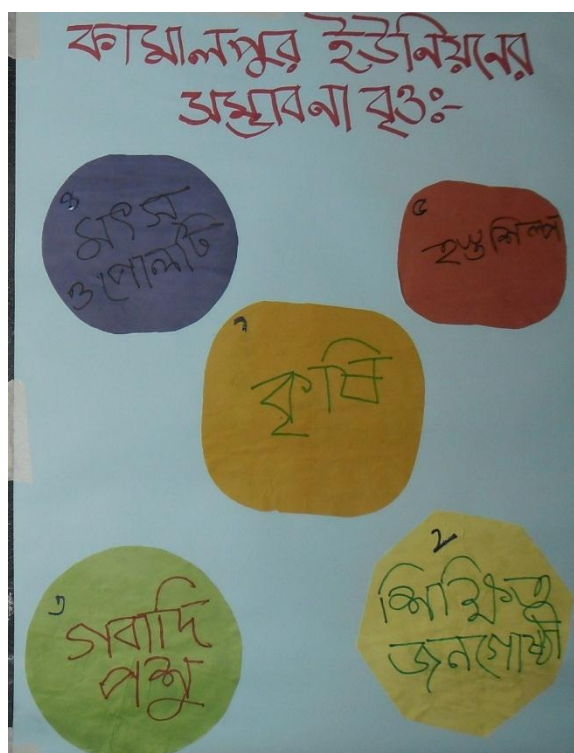 কামালপুর ইউনিয়নের
সম্ভাবনা বৃত্তঃ-
৪
মৎস
ও পোলটি
৫
হস্তশিল্প
১
কৃষি
৩
গবাদি
পশু
২
শিক্ষিত
জনগোষ্ঠী